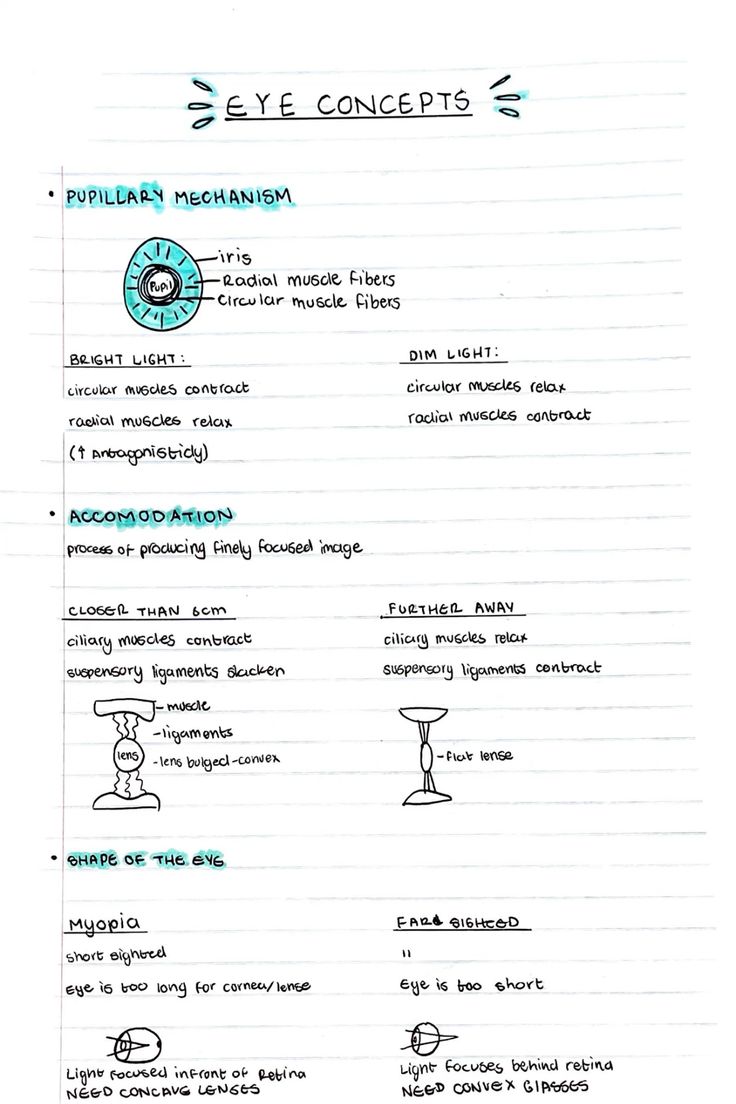 EYE CONCEPTS
• PUPILLARY MECHANISM
iris
Pupil
Radial muscle fibers
Circular muscle fibers
BRIGHT LIGHT:
circular muscles contract
radial muscles relax
(↑ Antagonisticly)
DIM LIGHT:
circular muscles relax
radial muscles contract
• ACCOMODATION
process of producing finely focused image
CLOSER THAN 6cm
ciliary muscles contract
suspensory ligaments slacken
muscle
-ligaments
lens
-lens bulged-convex
FURTHER AWAY
ciliary muscles relax
suspensory ligaments contract
-flat lense
• SHAPE OF THE EYE
Myopia
short sighted
Eye is too long for cornea/lense
Light focused infront of Retina
NEED CONCAVE LENSES
FAR SIGHTED
"
Eye is too short
Light focuses behind retina
NEED CONVEX GlASSES